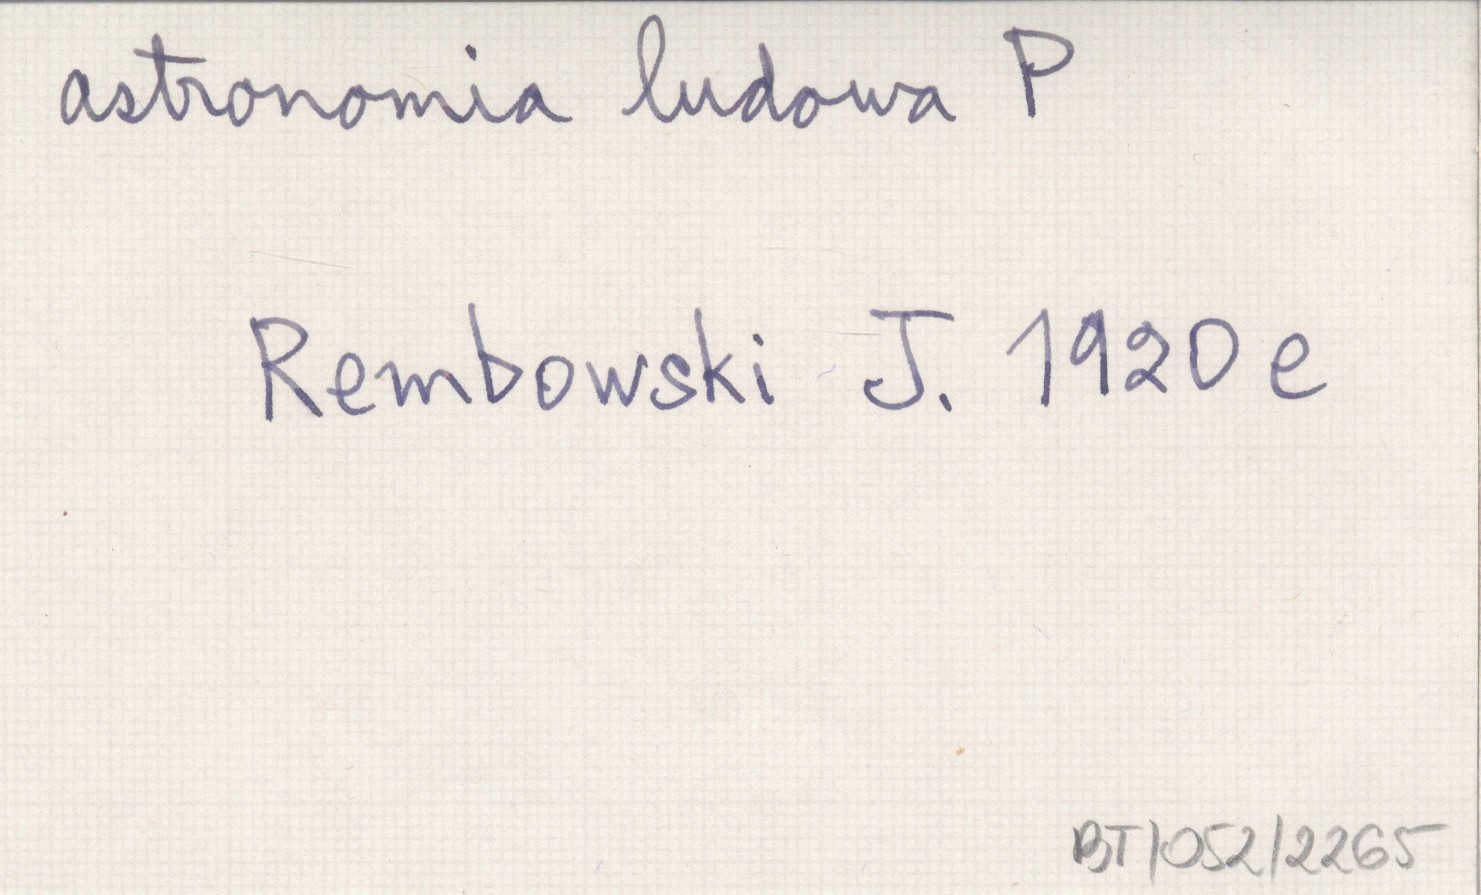 astronomia ludowa P
Rembowski J. 1920 e
BT/052/2265